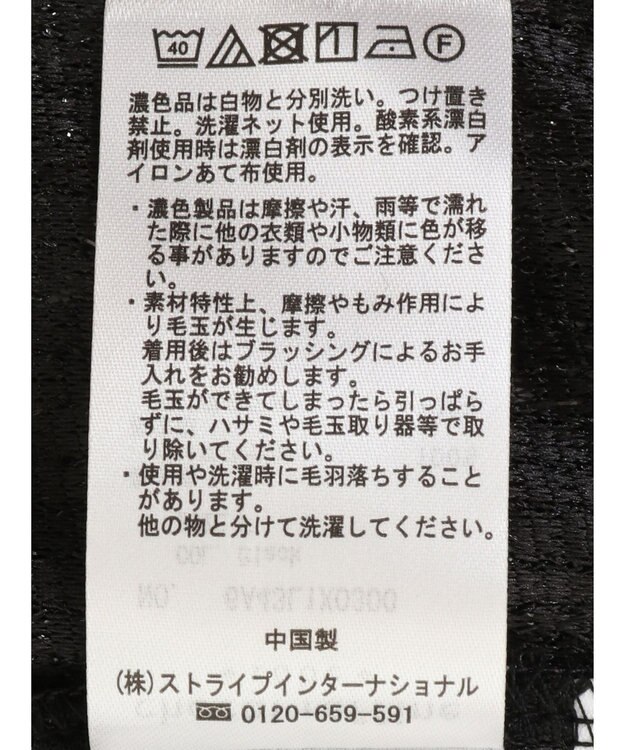 40 F
濃色品は白物と分別洗い。つけ置き
禁止。洗濯ネット使用。酸素系漂白
剤使用時は漂白剤の表示を確認。ア
イロンあて布使用。
・濃色製品は摩擦や汗、雨等で濡れ
た際に他の衣類や小物類に色が移
る事がありますのでご注意くださ
い。
・素材特性上、摩擦やもみ作用によ
り毛玉が生じます。
着用後はブラッシングによるお手
入れをお勧めします。
毛玉ができてしまったら引っぱら
ずに、ハサミや毛玉取り器等で取
り除いてください。
・使用や洗濯時に毛羽落ちすること
があります。
他の物と分けて洗濯してください。
中国製
(株)ストライプインターナショナル
0120-659-591